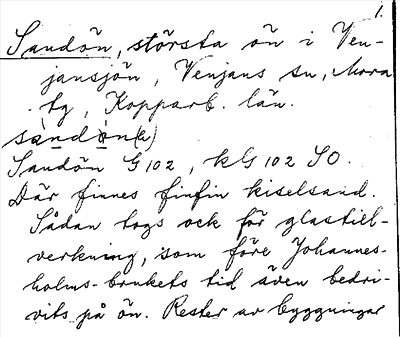 1.
Sandön, största ön i Ven-
jansjön, Venjans sn, Mora
tg, Kopparb. län.
sàndö̀n(a)
Sandön G102, kG 102 SO.
Där finnes finfin kiselsand.
Sådan togs ock för glastill-
verkning, som före Johannes-
holms-brukets tid även bedri-
vits på ön. Rester av byggningar